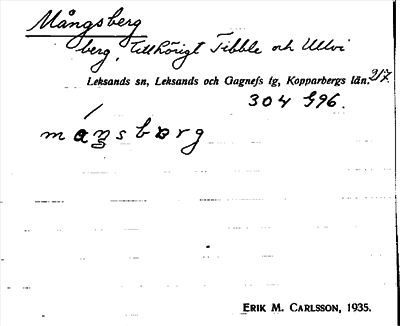 Mångsberg
berg, tillhörigt Tibble och Ullvi
Leksands sn, Leksands och Gagnefs tg, Kopparbergs län. 2/7.
304 996.
mángsbärg
ERIK M. CARLSSON, 1935.